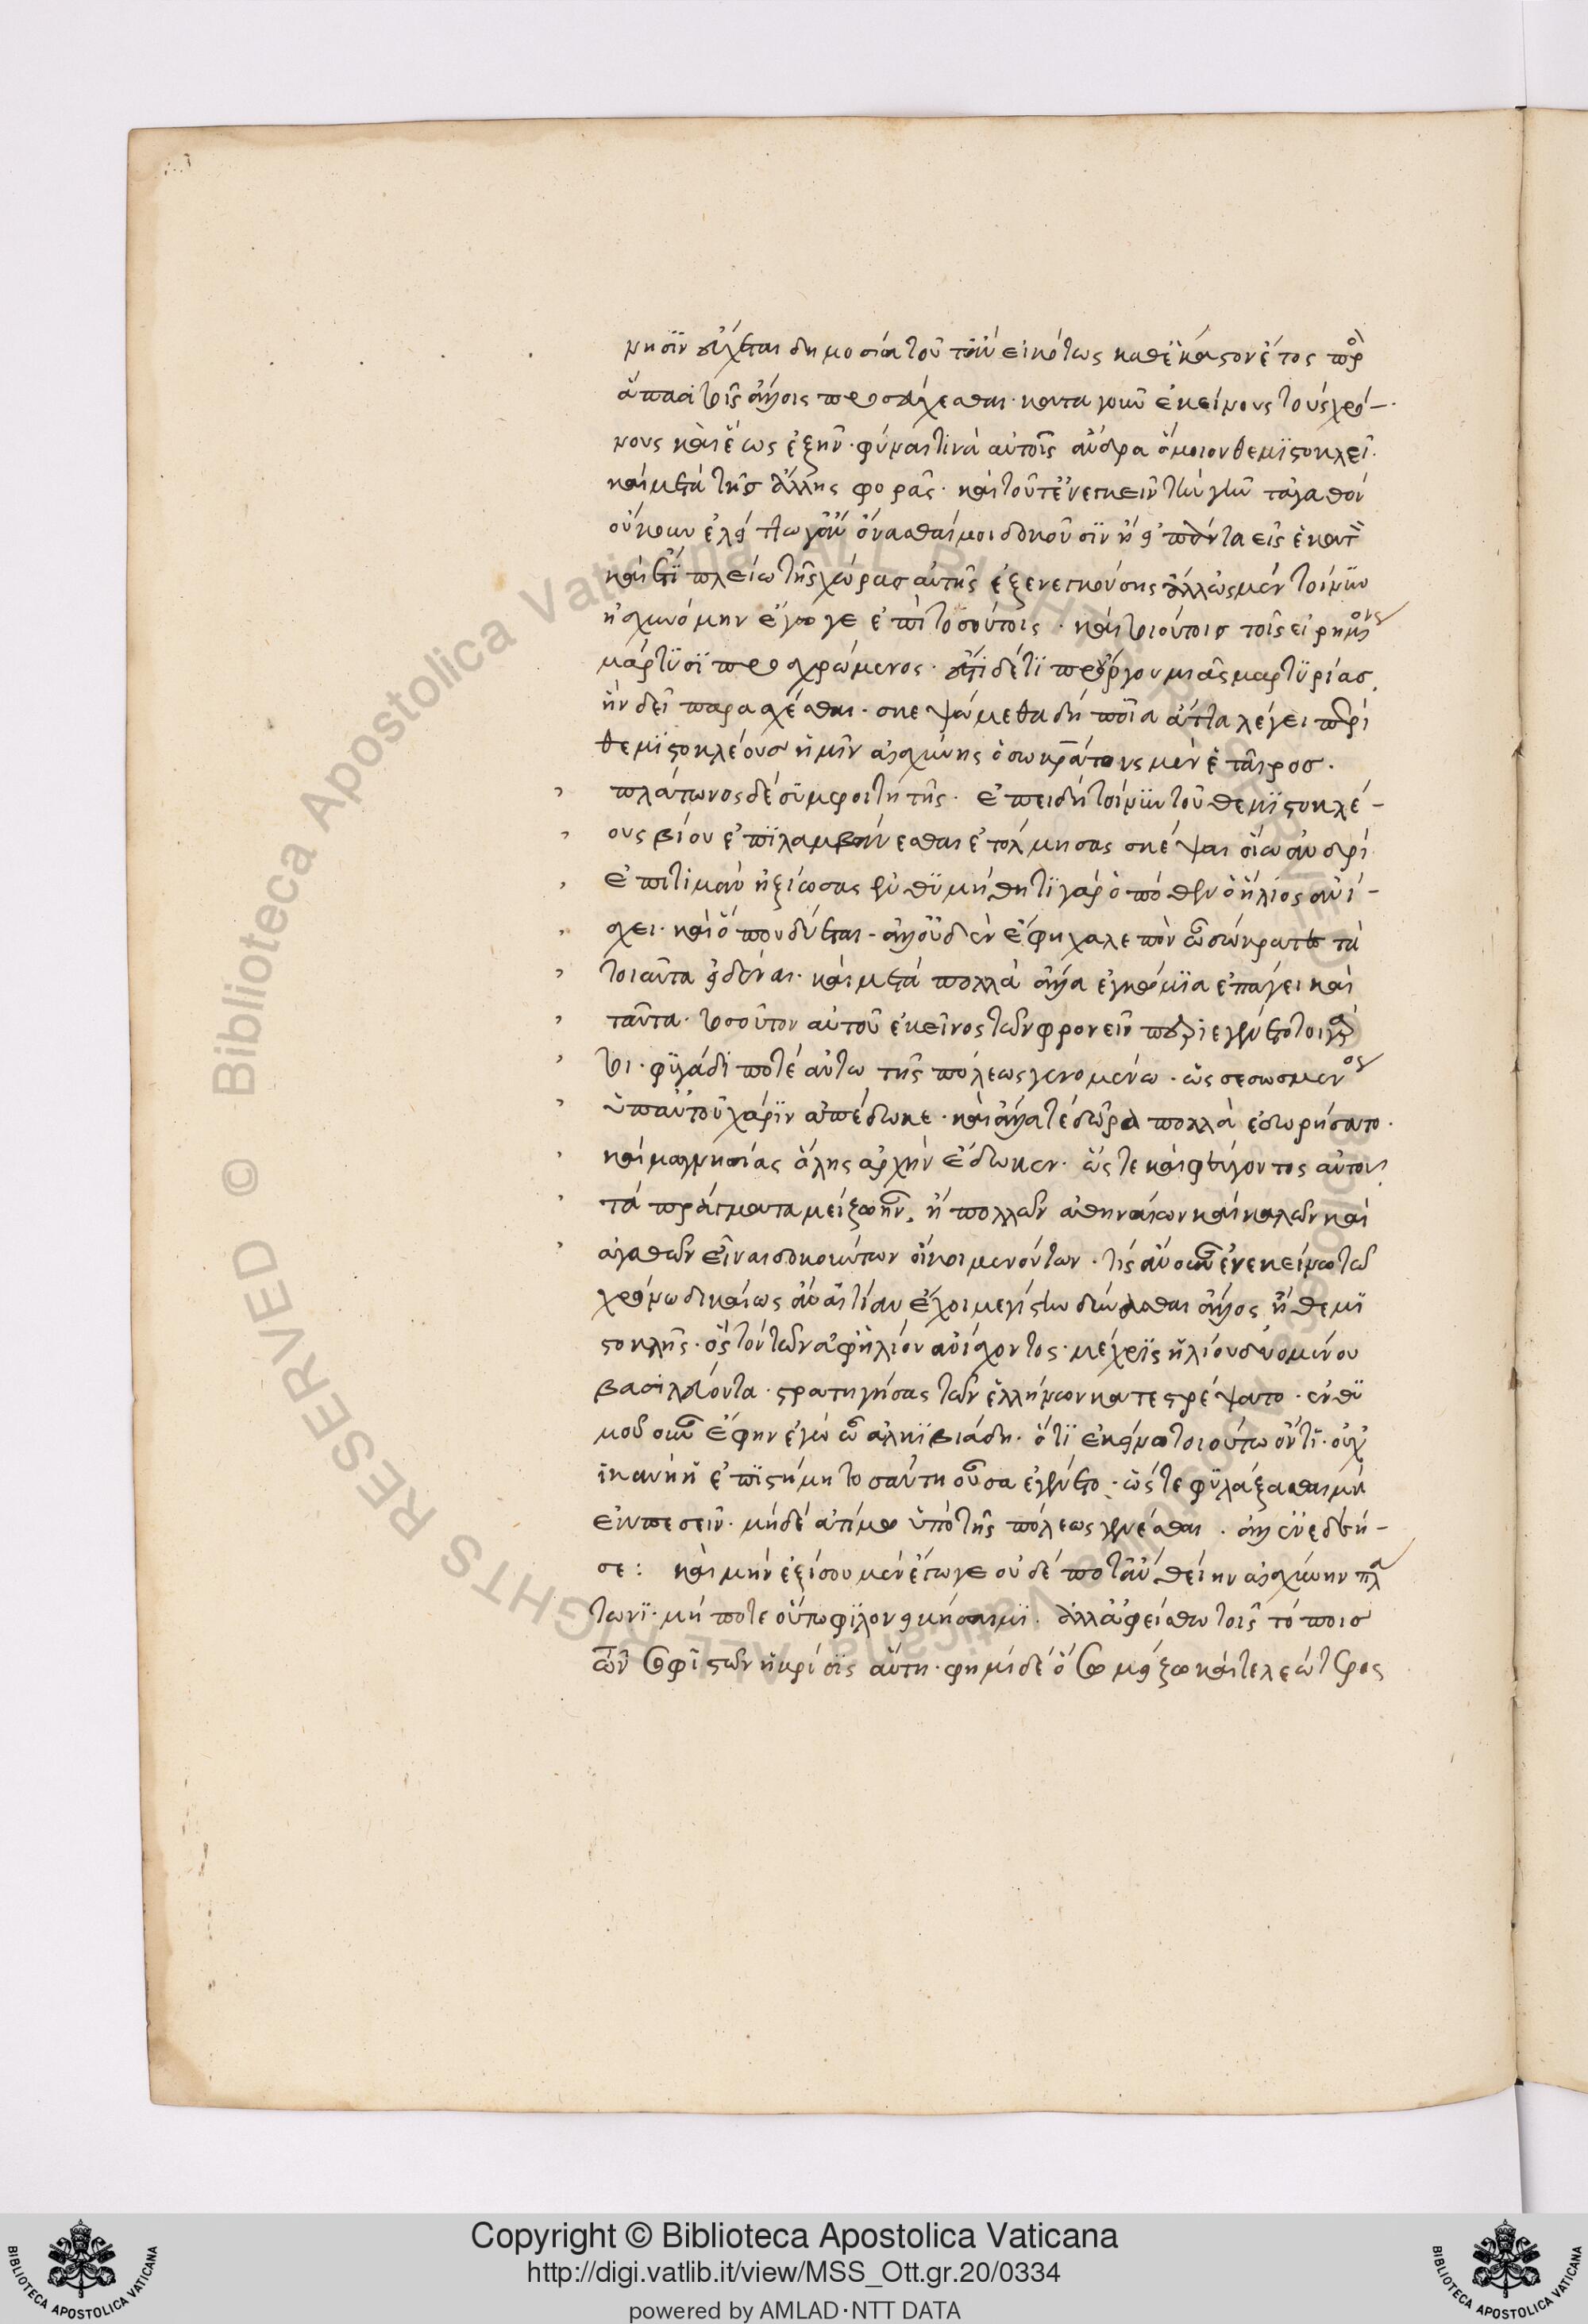 μησῒν εὔχεται δημοσία τοῦτ' ἂν εἰκότως καθ' ἕκαστον ἔτος πρὸς
ἅπασι τοῖς ἄλλοις προσεύχεσθαι· κατα γοῦν ἐκείνους τοὺς χρό-
νους καὶ ἕως ἐξῆν· φύναι τινὰ αὐτοῖς ἄνδρα ὅμοιον θεμιστοκλεῖ·
καὶ μετὰ τῆς ἄλλης φορᾶς· καὶ τοῦτ' ἐνεγκεῖν τὴν γῆν τἀγαθόν
οὔκουν ἐλάττω γ' ἂν ὄνασθαί μοι δοκοῦσϊν ἢ
καὶ ἔτι πλείω τῆς χώρασ αὐτῆς ἐξενεγκούσης ἄλλως μέν τοι νῦν
ἠσχυνόμην ἔγωγε ἐπὶ τοσούτοις· καὶ τοιούτοισ τοῖς εἰρημένοις
μάρτϋσϊ προσχρώμενος· ἔτι δέ τι προὔργου μιᾶς μαρτϋρίασ
ἣν δεῖ παρασχέσθαι· σκεψώμεθα δὴ ποῖα ἄττα λέγει περὶ
θεμϊστοκλέουσ ἡμῖν αἰσχίνης ὁ σωκράτους μὲν ἑταῖροσ·
πλάτωνος δὲ συμφοιτητής· ἐπειδὴ τοίνυν τοῦ θεμϊστοκλέ-
ους βίου ἐπϊλαμβάνεσθαι ἐτόλμησας σκέψαι οἵω ἀνδρὶ
ἐπιτιμᾶν ἠξίωσας ἐνθϋμήθητϊ γὰρ ὁπόθεν ὁ ἥλιος ἀνί-
σχει· καὶ ὅπου δύεται· ἀλλ' οὐδὲν ἔφη χαλεπὸν ὦ σώκρατες τὰ
τοιαῦτα εἰδέναι· καὶ μετὰ πολλὰ ἄλλα ἐγκώμϊα ἐπάγει καὶ
ταῦτα· τοσοῦτον αὐτοῦ ἐκεῖνος τῶν φρονεῖν περιεγένετο
φϋγάδι ποτὲ αὐτῶ τῆς πόλεως γενομένω· ὡς σεσωσμένος
ὑπ' αὐτοῦ χάρϊν ἀπέδωκε· καὶ ἄλλα τε δῶρα πολλὰ ἐδωρήσατο·
καὶ μαγνησίας ὅλης ἀρχὴν ἔδωκεν· ὥς τε καὶ φεύγοντος αὐτοῦ
τὰ πράγματα μείζω ἦν, ἢ πολλῶν ἀθηναίων καὶ καλῶν καὶ
ἀγαθῶν εἶναι δοκούντων οἴκοι μενόντων· τίς ἂν οὖν ἐν ἐκείνω τῶ
χρόνω δικαίως ἂν αἰτίαν ἔχοι μεγίστον δύνασθαι ἄλλος ἢ θεμϊ
στοκλῆς· ὃς τὸν τῶν ἀφ' ἡλίου ἀνίσχοντος· μέχρϊς ἡλίου δυομένου
βασιλεύοντα· στρατηγήσας τῶν ἑλλήνων κατεστρέψατο· ἐνθϋ
μοῦ οὖν ἔφην ἐγὼ ὦ ἀλκϊβιάδη· ὅτϊ ἐκείνω τοιούτω ὄντϊ· οὐχ'
ἱκανὴ ἡ ἐπϊστήμη τοσαύτη οὖσα ἐγένετο· ὥς τε φϋλάξασθαι μὴ
ἐκπεσεῖν· μηδὲ ἀτίμω ὑπὸ τῆς πόλεως γενέσθαι· ἀλλ' ἐνεδέη-
σε: καὶ μὴν ἐξίσου μὲν ἔγωγε οὐδέποτ' ἂν θείην αἰσχίνην πλά
τωνϊ· μή ποτε οὕτω φϊλονεικήσαιμϊ· ἀλλ' ἀφείσθω τοῖς τόποισ
ὧν σοφιστῶν ἡ κρίσϊς αὕτη· φημὶ δὲ ὅσω μείζω καὶ τελεώτερος